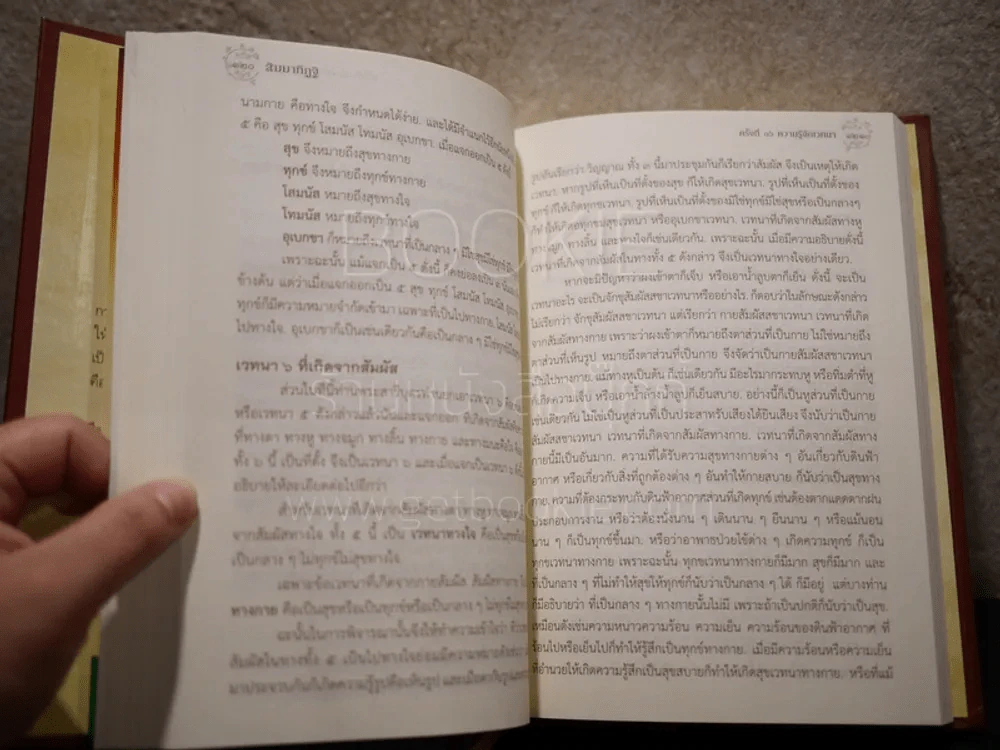 ๑๒๐ สัมมาทิฏฐิ
นามกาย คือทางใจ จึงกำหนดได้ง่าย. และได้มีจำแนกไว้อีก
๕ คือ สุข ทุกข์ โสมนัส โทมนัส อุเบกขา. เมื่อแจกออกเป็น ๕ ดังนี้
สุข จึงหมายถึงสุขทางกาย
ทุกข์ จึงหมายถึงทุกข์ทางกาย
โสมนัส หมายถึงสุขทางใจ
โทมนัส หมายถึงทุกข์ทางใจ
อุเบกขา ก็หมายถึงเวทนาที่เป็นกลาง ๆ
เพราะฉะนั้น แม้แจกเป็น ๕ ดังนี้ ก็คงย่อลงเป็น ๓
ข้างต้น แต่ว่าเมื่อแจกเป็น ๕ สุข ทุกข์ โสมนัส โทมนัส
ทุกข์ก็มีความหมายจำกัดเข้ามา เฉพาะที่เป็นไปทางกาย. โสมนัส
ไปทางใจ. อุเบกขาก็เป็นเช่นเดียวกันคือเป็นกลาง ๆ
เวทนา ๖ ที่เกิดจากสัมผัส
ส่วนในที่นี้ท่านพระสารีบุตร
หรือเวทนา ๕ ดังกล่าวแล้ว
ที่ทางตา ทางหู ทางจมูก ทางลิ้น ทางกาย และทางมนะคือใจ
ทั้ง ๖ นี้ เป็นที่ตั้ง จึงเป็นเวทนา ๖ และเมื่อแจกเป็นเวทนา ๖ ดังนี้
อธิบายให้ละเอียดต่อไปอีกว่า
สำหรับเวทนาที่เกิดจาก
จากสัมผัสทางใจ ทั้ง ๕ นี้ เป็น เวทนาทางใจ
เป็นกลาง ๆ ไม่ทุกข์ไม่สุขทางใจ
เฉพาะข้อเวทนาที่เกิดจากกายสัมผัส สัมผัสทางกาย
ทางกาย คือเป็นสุขหรือเป็นทุกข์หรือเป็นกลาง ๆ ไม่ทุกข์ไม่สุข
ฉะนั้นในการพิจารณานั้นจึงให้ทำความเข้าใจว่า
สัมผัสในทางทั้ง ๕ เป็นไปทางใจย่อมมีความหมาย
มาประจวบกันก็เกิดความรู้รูปคือเห็นรูป และเมื่อตากับรูป
ครั้งที่ ๑๖ ความรู้สึกเวทนา ๑๒๑
รูปอันเรียกว่า วิญญาณ ทั้ง ๓ นี้มาประชุมกันก็เรียกว่าสัมผัส จึงเป็นเหตุให้เกิด
เวทนา. หากรูปที่เห็นเป็นที่ตั้งของสุข ก็ให้เกิดสุขเวทนา. รูปที่เห็นเป็นที่ตั้งของ
ทุกข์ ก็ให้เกิดทุกขเวทนา. รูปที่เห็นเป็นที่ตั้งของมิใช่ทุกข์มิใช่สุขหรือเป็นกลางๆ
ก็ทำให้เกิดอทุกขมสุขเวทนา หรืออุเบกขาเวทนา. เวทนาที่เกิดจากสัมผัสทางหู
ทางจมูก ทางลิ้น และทางใจก็เช่นเดียวกัน. เพราะฉะนั้น เมื่อมีความอธิบายดั่งนี้
เวทนาที่เกิดจากสัมผัสในทางทั้ง ๕ ดังกล่าว จึงเป็นเวทนาทางใจอย่างเดียว.
หากจะมีปัญหาว่าผงเข้าตาก็เจ็บ หรือเอาน้ำลูบตาก็เย็น ดั่งนี้ จะเป็น
เวทนาอะไร จะเป็นจักขุสัมผัสสชาเวทนาหรืออย่างไร. ก็ตอบว่าในลักษณะดังกล่าว
ไม่เรียกว่า จักขุสัมผัสสชาเวทนา แต่เรียกว่า กายสัมผัสสชาเวทนา เวทนาที่เกิด
จากสัมผัสทางกาย เพราะว่าผงเข้าตาก็หมายถึงตาส่วนที่เป็นกาย ไม่ใช่หมายถึง
ตาส่วนที่เห็นรูป หมายถึงตาส่วนที่เป็นกาย จึงจัดว่าเป็นกายสัมผัสสชาเวทนา
เป็นไปทางกาย. แม้ทางหูเป็นต้น ก็เช่นเดียวกัน มีอะไรมากระทบหู หรือทิ่มตำที่หู
ก็เกิดความเจ็บ หรือเอาน้ำล้างน้ำลูบก็เย็นสบาย. อย่างนี้ก็เป็นหูที่เป็นส่วนกาย
เช่นเดียวกัน ไม่ใช่เป็นหูส่วนที่เป็นประสาทรับเสียงได้ยินเสียง จึงนับว่าเป็นกาย
สัมผัสสชาเวทนา เวทนาที่เกิดจากสัมผัสทางกาย. เวทนาที่เกิดจากสัมผัสทาง
กายนี้มีเป็นอันมาก. ความที่ได้รับความสุขทางกายต่าง ๆ อันเกี่ยวกับดินฟ้า
อากาศ หรือเกี่ยวกับสิ่งที่ถูกต้องต่าง ๆ อันทำให้กายสบาย ก็นับว่าเป็นสุขทาง
กาย. ความที่ต้องกระทบกับดินฟ้าอากาศส่วนที่เกิดทุกข์ เช่นต้องตากแดดตากฝน
ประกอบการงาน หรือว่าต้องนั่งนาน ๆ เดินนาน ๆ ยืนนาน ๆ หรือแม้นอน
นาน ๆ ก็เป็นทุกข์ขึ้นมา. หรือว่าอาพาธป่วยไข้ต่าง ๆ เกิดความทุกข์ ก็เป็น
ทุกขเวทนาทางกาย เพราะฉะนั้น ทุกขเวทนาทางกายก็มีมาก สุขก็มีมาก และ
ที่เป็นกลาง ๆ ที่ไม่ทำให้สุขให้ทุกข์ก็นับว่าเป็นกลาง ๆ ได้ ก็มีอยู่ แต่บางท่าน
ก็มีอธิบายว่า ที่เป็นกลาง ๆ ทางกายนั้นไม่มี เพราะถ้าเป็นปกติก็นับว่าเป็นสุข.
เหมือนดังเช่นความหนาวความร้อน ความเย็น ความร้อนของดินฟ้าอากาศ ที่
ร้อนไปหรือเย็นไปก็ทำให้รู้สึกเป็นทุกข์ทางกาย. เมื่อมีความร้อนหรือความเย็น
ที่อำนวยให้เกิดความรู้สึกเป็นสุขสบายก็ทำให้เกิดสุขเวทนาทางกาย. หรือที่แม้
BOOKIE
www.getbookie.com